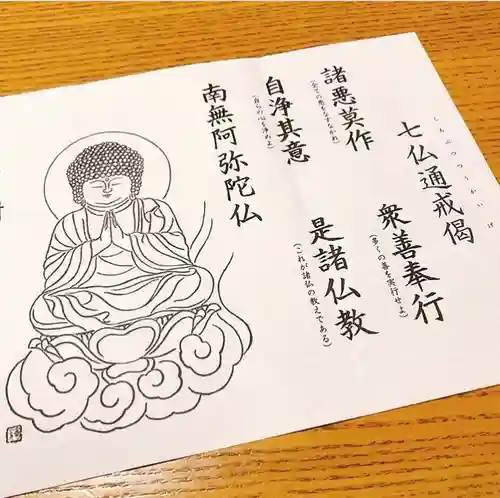 七仏通戒偈
しちぶつつうかいげ
諸悪莫作
(全ての悪をなすなかれ)
衆善奉行
(多くの善を実行せよ)
自浄其意
(自らの心を浄めよ)
是諸仏教
(これが諸仏の教えである)
南無阿弥陀仏